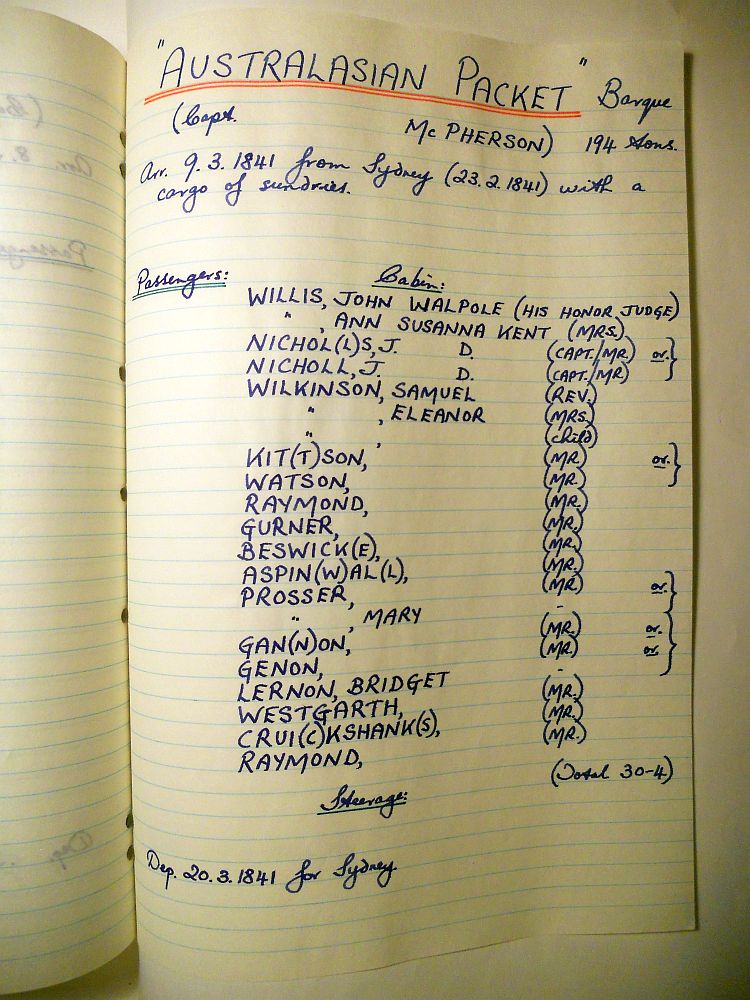 "AUSTRALASIAN PACKET" Barque
(Capt. McPHERSON) 194 tons.
Arr. 9.3.1841 from Sydney (23.2.1841) with a
cargo of sundries.
Passengers: Cabin:
WILLIS, JOHN WALPOLE (HIS HONOR JUDGE)
" , ANN SUSANNA KENT (MRS.)
NICHOL(L)S, J. D. (CAPT./MR) or. }
NICHOLL, J. D. (CAPT./MR)
WILKINSON, SAMUEL (REV.)
" , ELEANOR (MRS.)
" , (child)
KIT(T)SON, (MR) or. }
WATSON, (MR.)
RAYMOND, (MR.)
GURNER, (MR.)
BESWICK(E), (MR.)
ASPIN(W)AL(L), (MR.)
PROSSER, (MR) or. }
" , MARY -
GAN(N)ON, (MR.) or. }
GENON, (MR.) or.
LERNON, BRIDGET -
WESTGARTH, (MR.)
CRUI(C)KSHANK(S), (MR.)
RAYMOND, (MR.)
(Total 30-4)
Steerage:
Dep. 20.3.1841 for Sydney